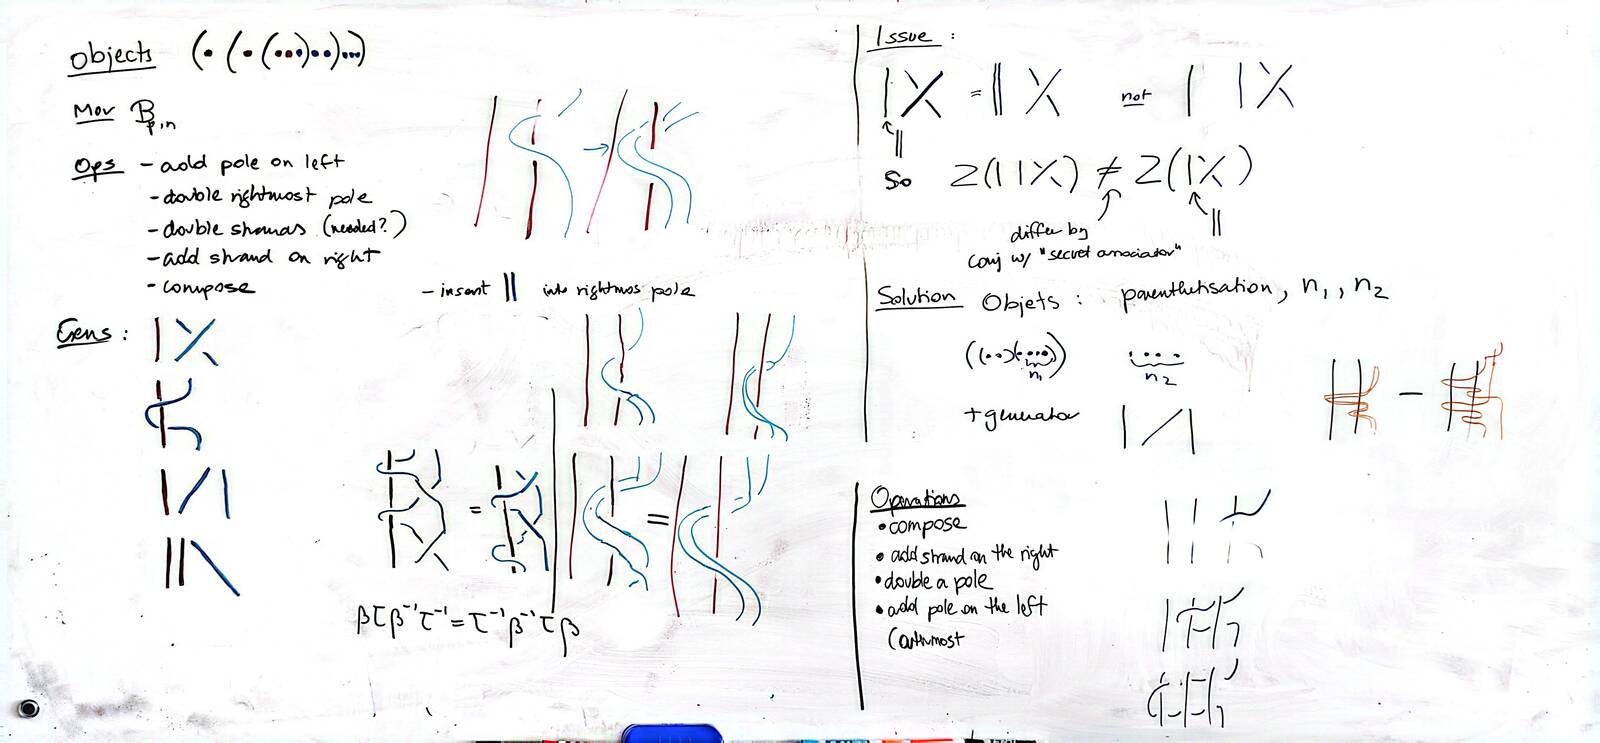 Objects (• (• (•••)••)•••)
Mor B p,n
Ops - add pole on left
- double rightmost pole
- double strands (needed?)
- add strand on right
- compose
- insert || into rightmos pole
Gens:
=
=
βτβ⁻¹τ⁻¹ = τ⁻¹β⁻¹τβ
Issue :
= not
So Z(| | X) ≠ Z(| X)
differ by
conj w/ "secret associator"
Solution Objets : parenthetisation, n₁, n₂
((••)(••••)) ••••
n₁ n₂
+ generator
Operations
• compose
• add strand on the right
• double a pole
• add pole on the left